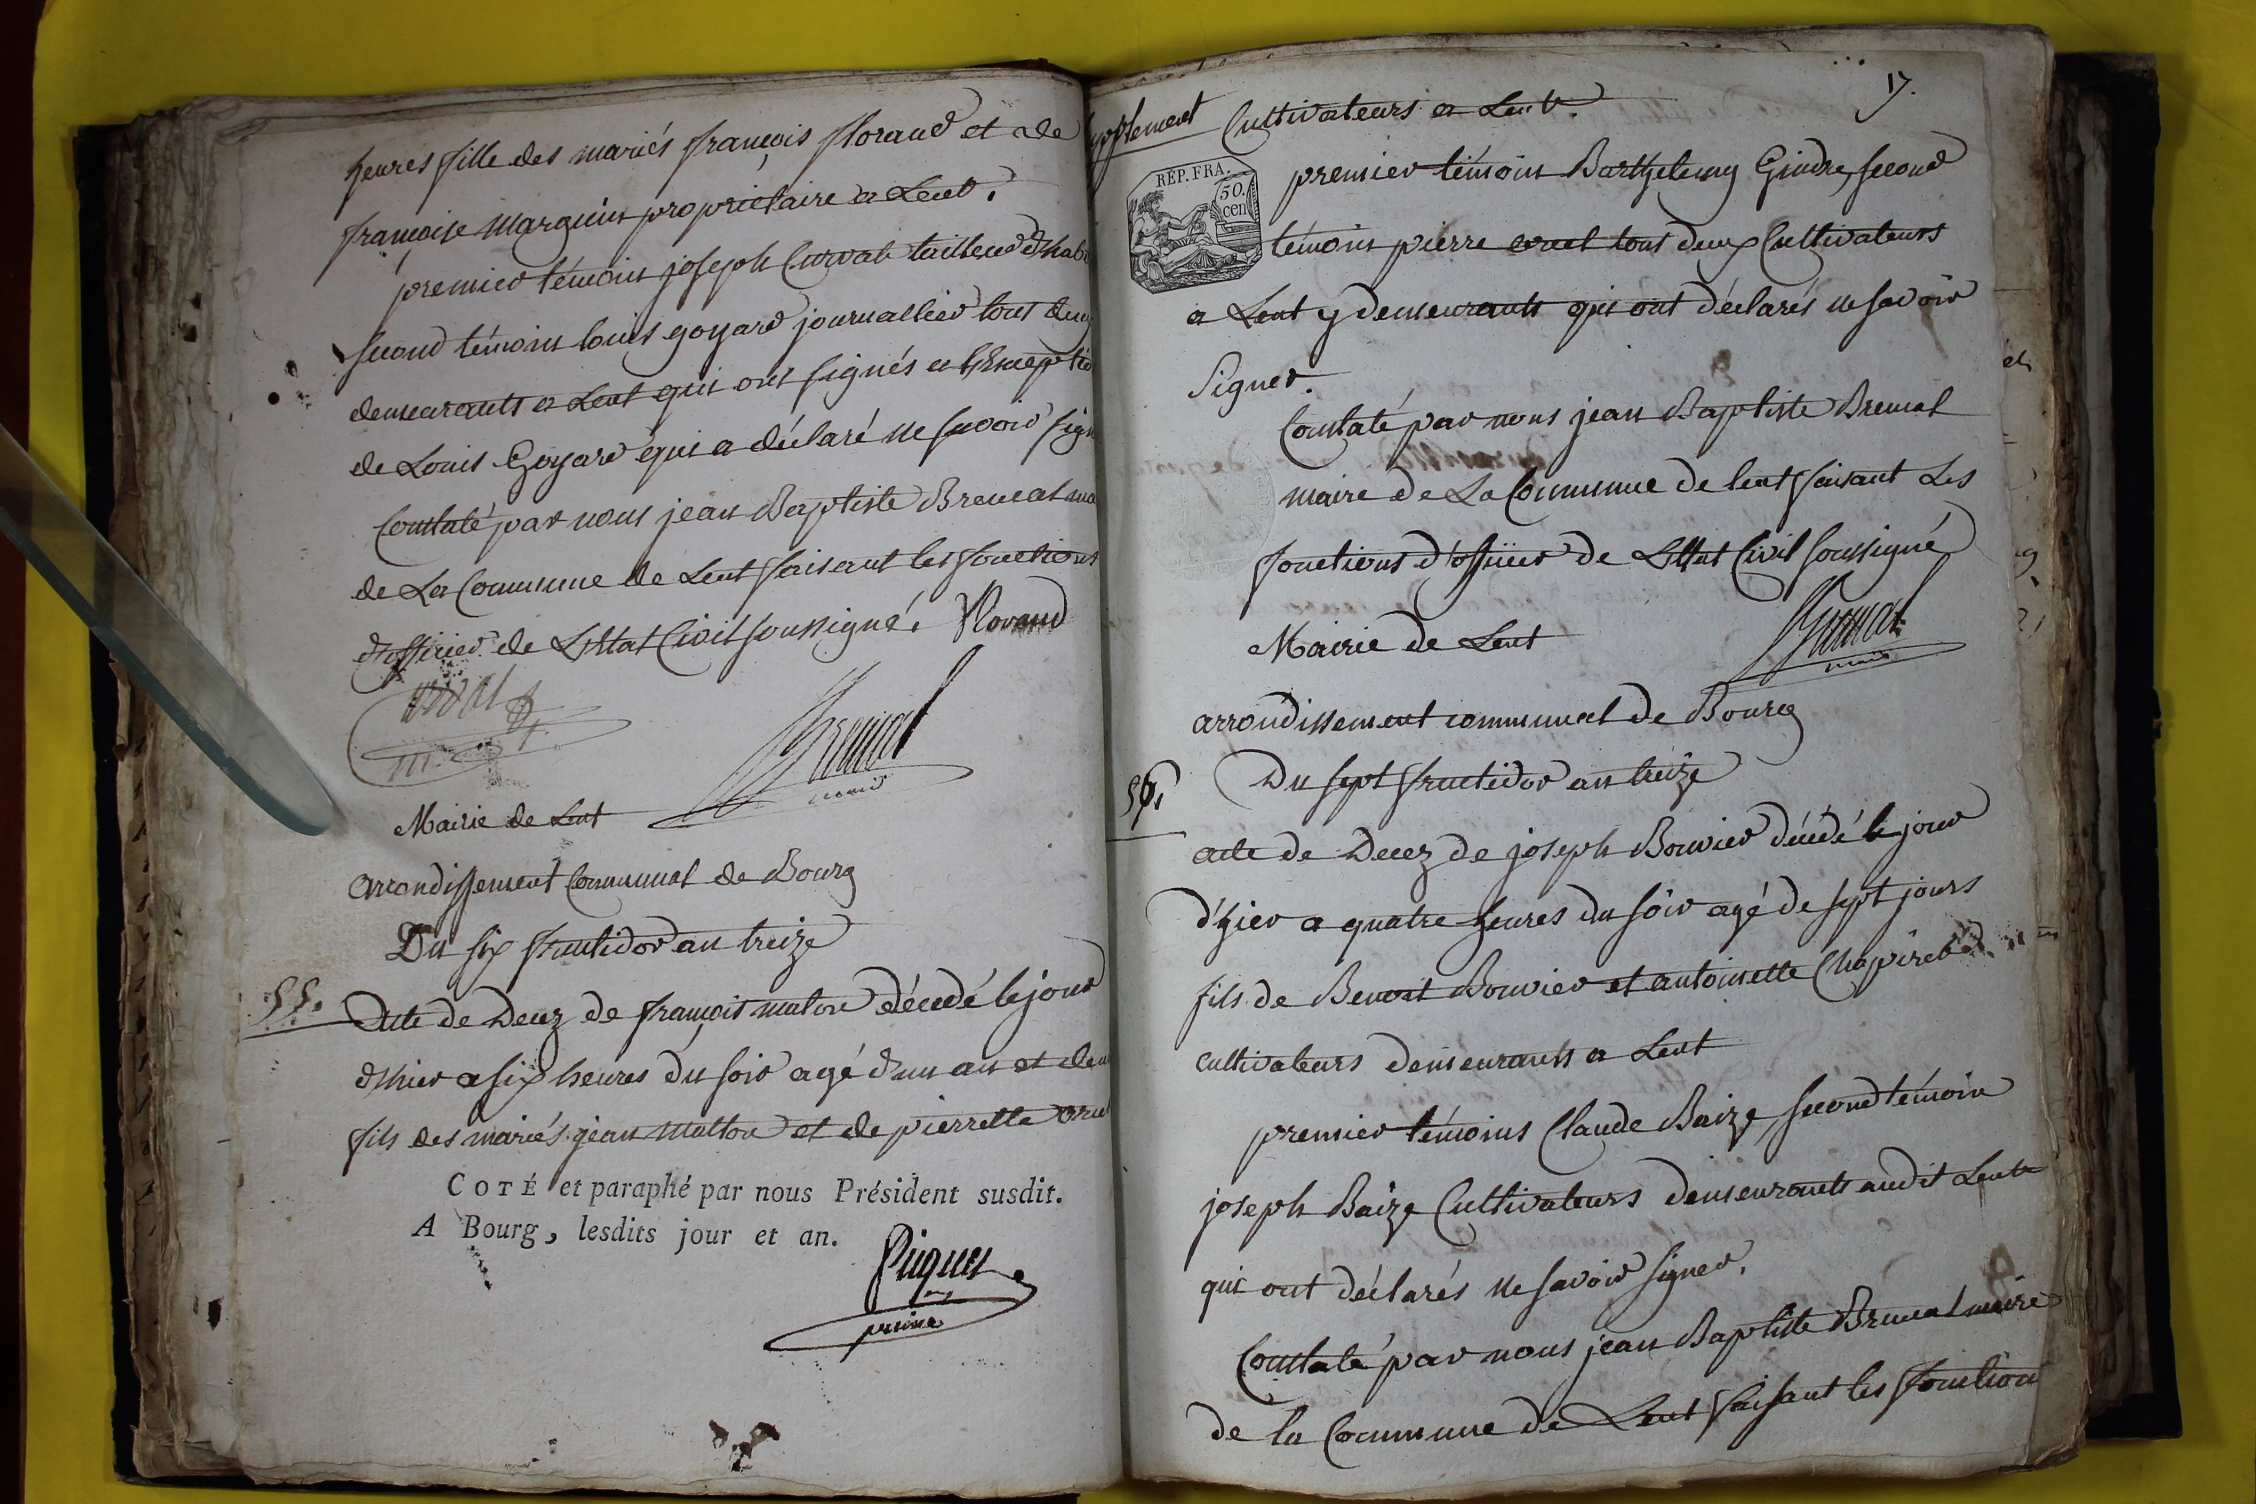 heures fille des mariés françois florand et de
françoise Marguin propriétaire a Lent.
premier témoin joseph Curval tailleur d'hab
second témoin louis goyard journallier tous deux
demeurants a Lent qui ont signés a l'Exceptio
de Louis Goyard qui a déclaré ne savoir sign
Constaté par nous jean Baptiste Bremal ma
de La Commune de Lent faisant les fonctions
d'officier de L'Etat Civil soussigné. Florand
Bremal
maire
Mairie de Lent
arrondissement Communal de Bourg
Du six fructidor an treize
55. Acte de Decez de françois maton décedé le jour
d'hier a six heures du soir agé d'un an et dem
fils des mariés jean matton et de pierrette
COTÉ et paraphé par nous Président susdit.
A Bourg, lesdits jour et an.
17.
supplement Cultivateurs a Lent.
REP. FRA.
50.
cen
premier témoin Barthelemy Gindre, second
témoin pierre tous deux Cultivateurs
a Lent y demeurants qui ont déclarés ne savoir
Signer.
Constaté par nous jean Baptiste Bremal
maire de La Commune de lent faisant Les
fonctions d'officier de L'Etat Civil soussigné
Mairie de Lent
Bremal
maire
arrondissement communal de Bourg
56. Du sept fructidor an treize
acte de Decez de joseph Bouvier décédé le jour
d'hier a quatre heures du soir agé de sept jours
fils de Benoit Bouvier et antoinette
cultivateurs demeurants a Lent
premier témoins Claude Baize, second témoin
joseph Baize Cultivateurs demeurants audit Lent
qui ont déclarés ne savoir signer.
Constaté par nous jean Baptiste Bremal maire
de la Commune de Lent faisant les fonction